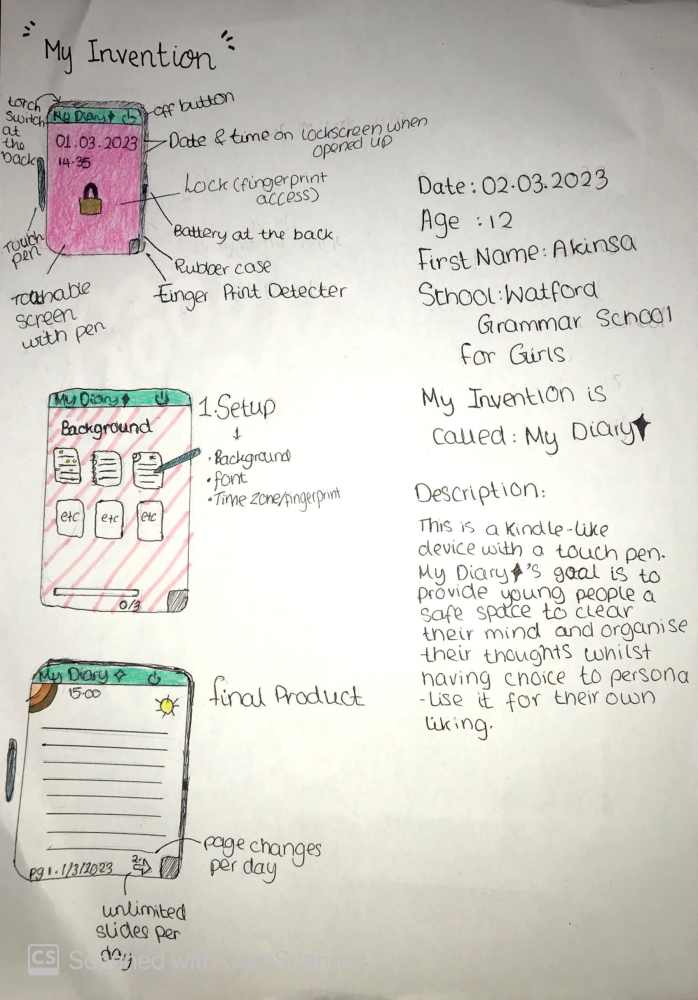 "My Invention"
torch
switch
at
the
back
off button
My Diary
01.03.2023
14.35
Date & time on lockscreen when
opened up
Lock (fingerprint
access)
Touch
pen
Battery at the back
Rubber case
Finger Print Detecter
Touchable
screen
with pen
My Diary
Background
etc
etc
etc
0/3
1. Setup
• Background
• font
• Time zone/fingerprint
My Diary
15:00
final Product
page changes
per day
pg 1. 1/3/2023
unlimited
slides per
day
Date: 02.03.2023
Age : 12
First Name: Akinsa
School: Watford
Grammar School
for Girls
My Invention is
called: My Diary
Description:
This is a kindle-like
device with a touch pen.
My Diary's goal is to
provide young people a
safe space to clear
their mind and organise
their thoughts whilst
having choice to persona
-lise it for their own
liking.
CS Scanned with CamScanner